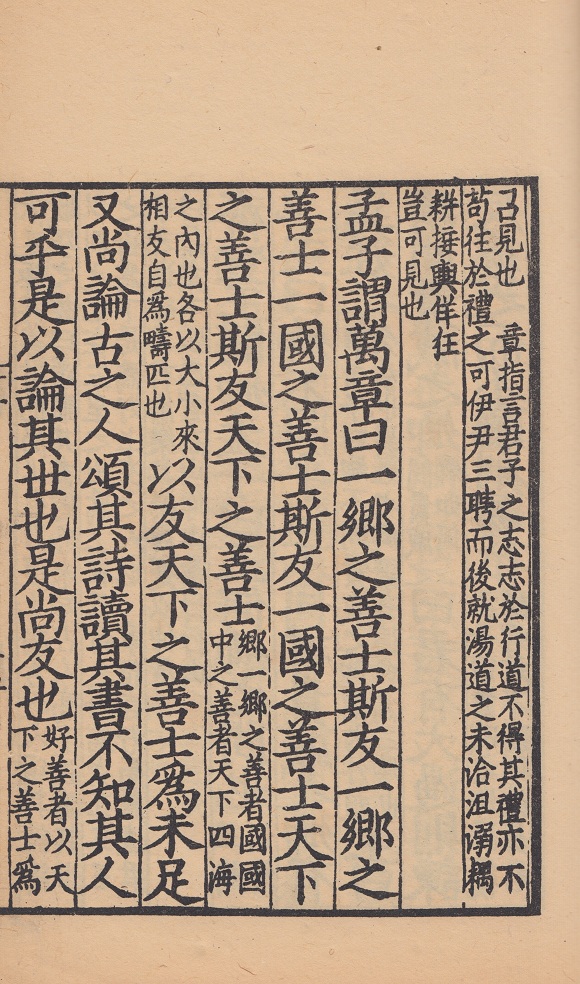 召見也　章指言君子之志志於行道不得其禮亦不
苟往於禮之可伊尹三聘而後就湯道之未洽沮溺耦
耕接輿佯狂
豈可見也
孟子謂萬章曰一鄉之善士斯友一鄉之
善士一國之善士斯友一國之善士天下
之善士斯友天下之善士鄉一鄉之善者國國
中之善者天下四海
之內也各以大小來
相友自爲疇匹也以友天下之善士爲未足
又尚論古之人頌其詩讀其書不知其人
可乎是以論其世也是尚友也好善者以天
下之善士爲